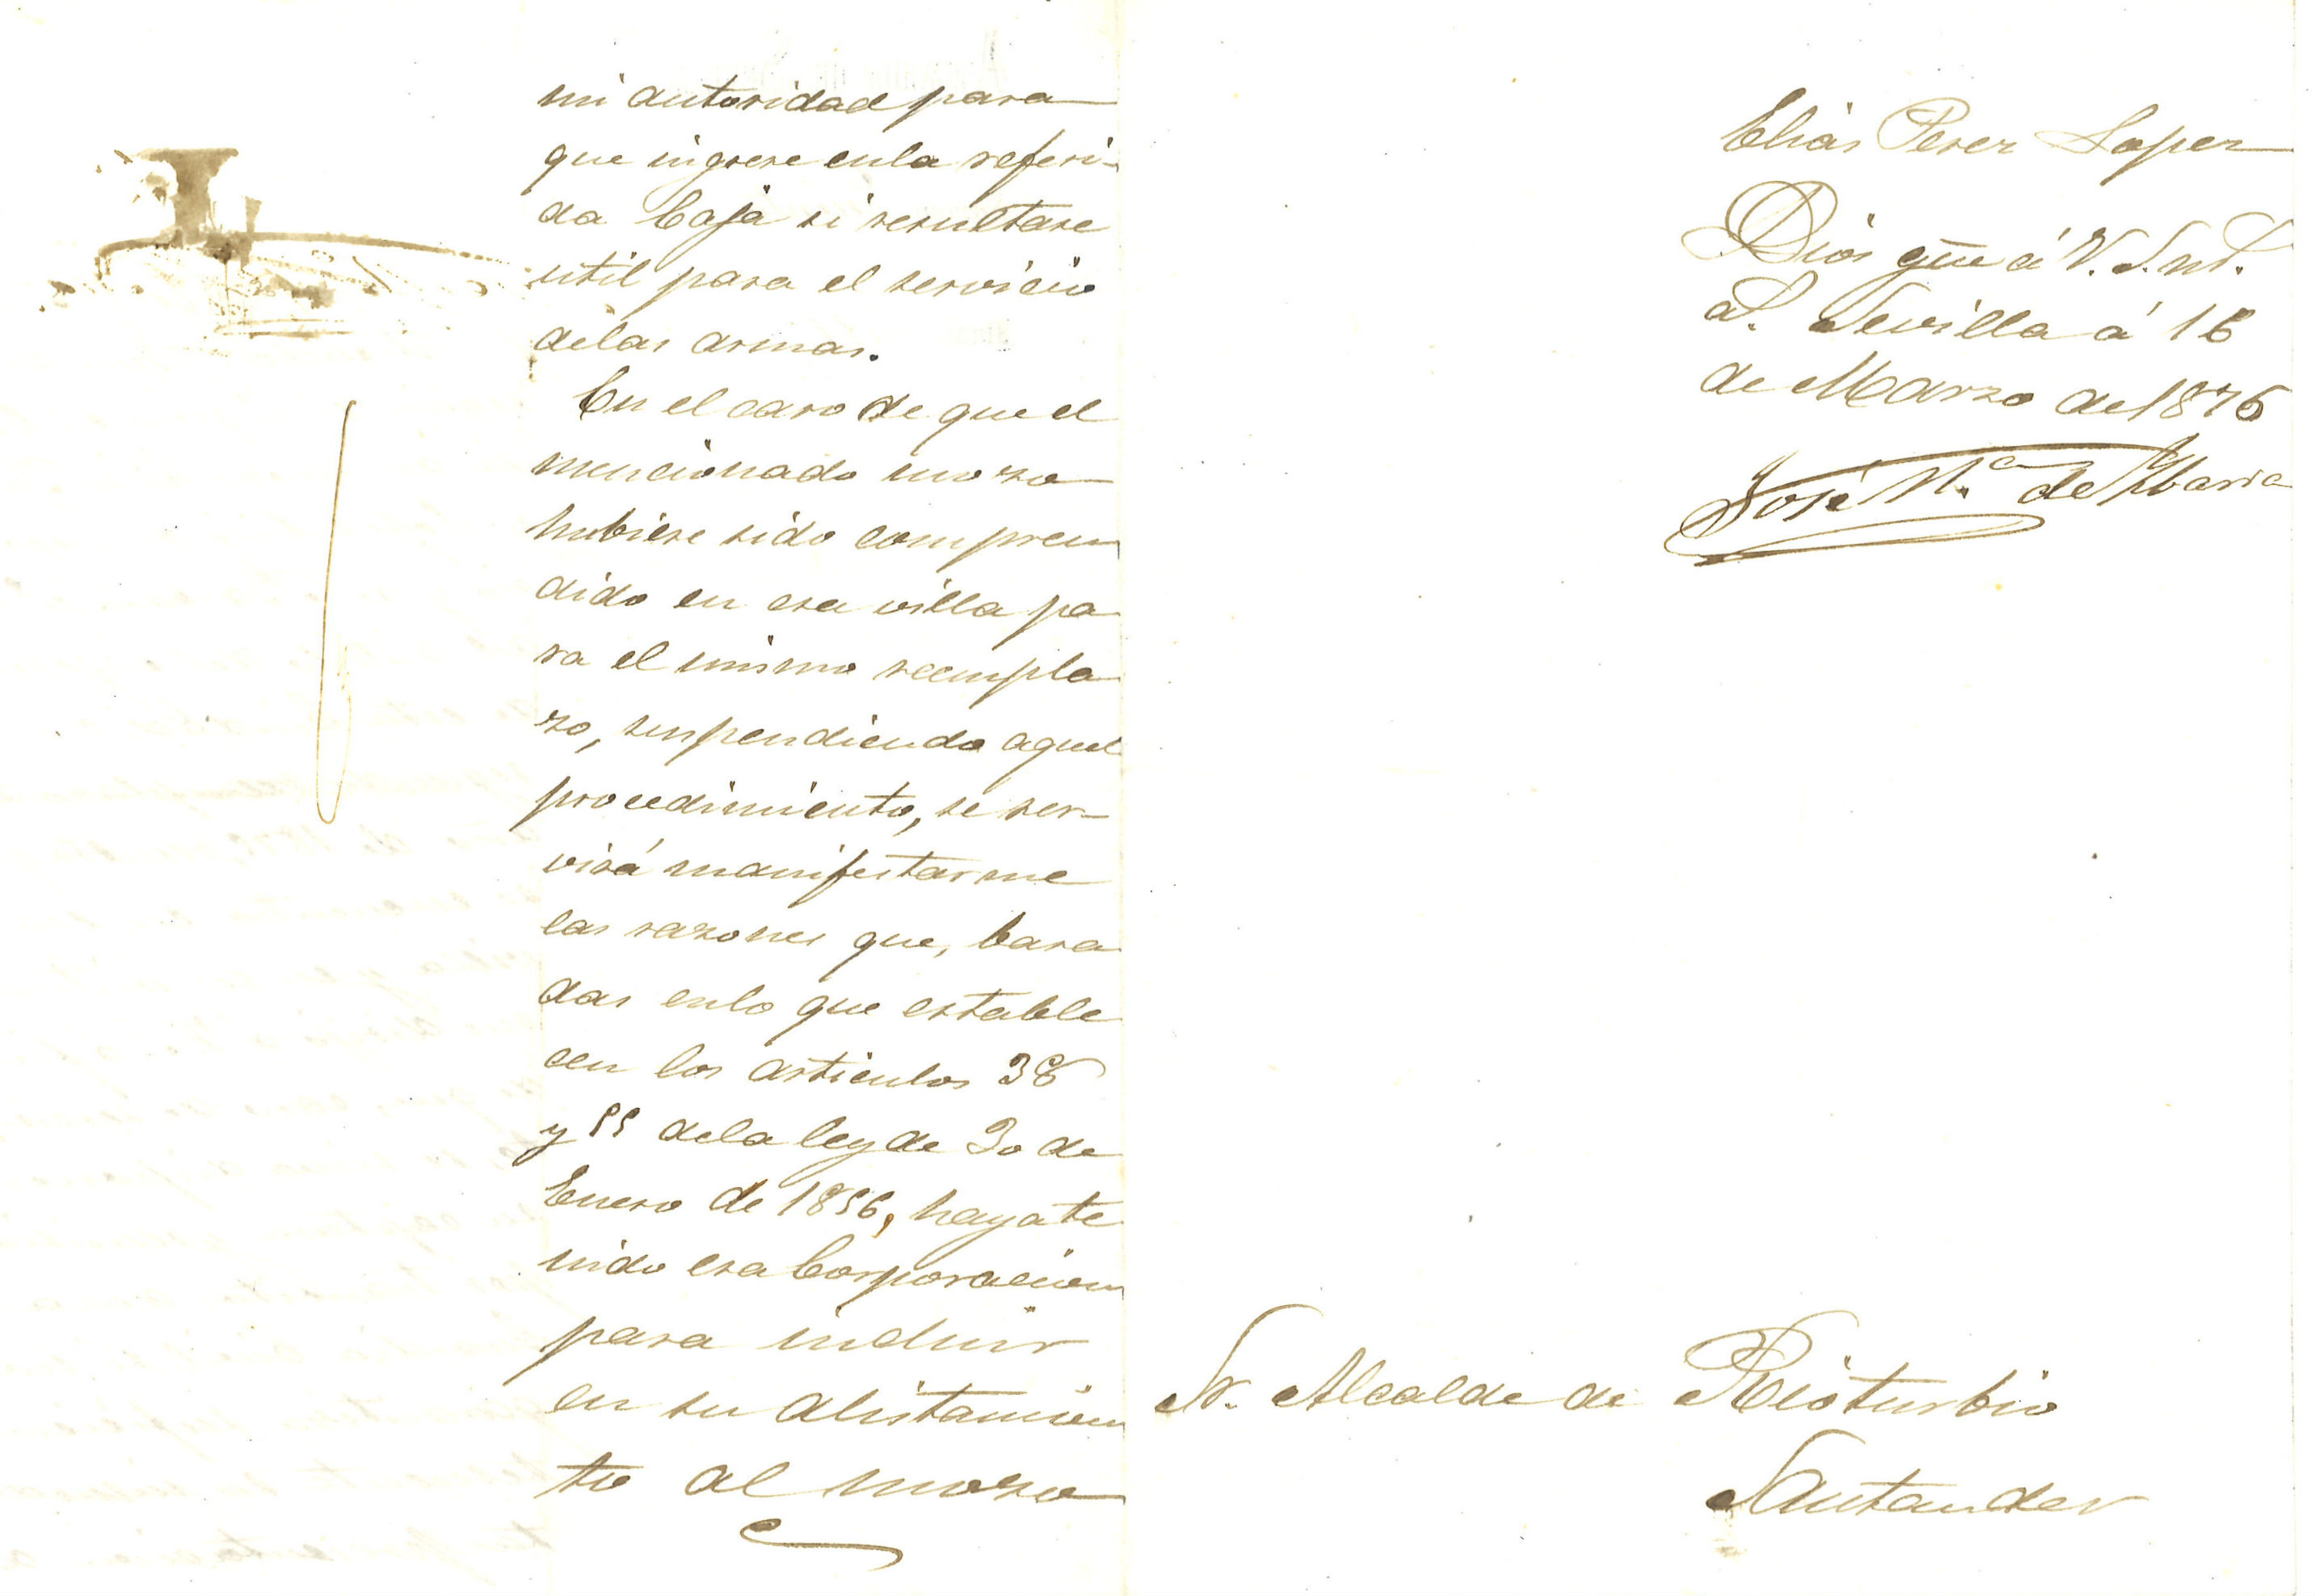 mi autoridad para
que ingrese en la referi-
da Caja si resultase
util para el servicio
de las armas.
En el caso de que el
mencionado mozo
hubiese sido compren
dido en esa villa pa
ra el mismo reempla
zo, suspendiendo aquel
procedimiento, se ser-
virá manifestarme
las razones que, basa
das en lo que estable
cen los articulos 38
y 55 de la ley de 30 de
Enero de 1856, haya te
nido esa Corporacion
para incluir
en su alistamien
to al mozo
Elias Perez Lopez
Dios gūe á V. S. m.
a. Sevilla á 16
de Marzo de 1876
José Mª de Ybarra
Sr. Alcalde de Rioturbio
Santander